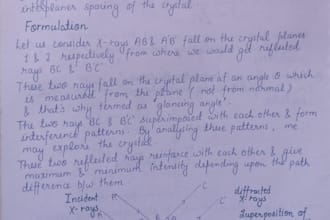 interplaner spacing of the crystal
Formulation
Let us consider X-rays AB & A'B' fall on the crystal planes
1 & 2 respectively from where we would get reflected
rays BC & B'C'.
These two rays fall on the crystal plane at an angle θ which
is measured from the plane (not from normal)
& that's why termed as 'glancing angle'.
The two rays BC & B'C' superimposed with each other & form
interference patterns. By analysing these patterns, we
may explore the crystal.
These two reflected rays reinforce with each other & give
maximum & minimum intensity depending upon the path
difference b/w them.
Incident diffracted
X-rays X-rays
C
C'
Superposition of